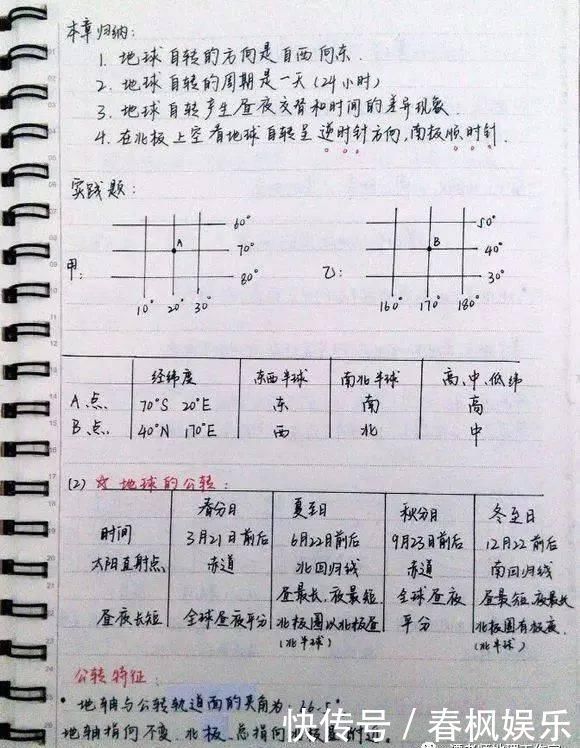 本章归纳:
1. 地球自转的方向是自西向东.
2. 地球自转的周期是一天(24小时)
3. 地球自转产生昼夜交替和时间的差异现象.
4. 在北极上空看地球自转呈逆时针方向,南极顺时针.
实践题:
甲:
A
60°
70°
80°
10° 20° 30°
乙:
B
50°
40°
30°
160° 170° 180°
经纬度 东西半球 南北半球 高、中、低纬
A点 70°S 20°E 东 南 高
B点 40°N 170°E 西 北 中
(2) ☆地球的公转:
春分日 夏至日 秋分日 冬至日
时间 3月21日前后 6月22日前后 9月23日前后 12月22前后
太阳直射点 赤道 北回归线 赤道 南回归线
昼夜长短 全球昼夜平分 昼最长,夜最短 北极圈以北极昼 (北半球) 全球昼夜平分 昼最短,夜最长 北极圈有极夜. (北半球)
公转特征:
• 地轴与公转轨道面的夹角为:
地轴指向不变,北极总指向
快传号/春枫娱乐